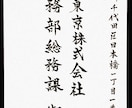 千代田区日本橋一丁目一
東京株式会社
務部総務課